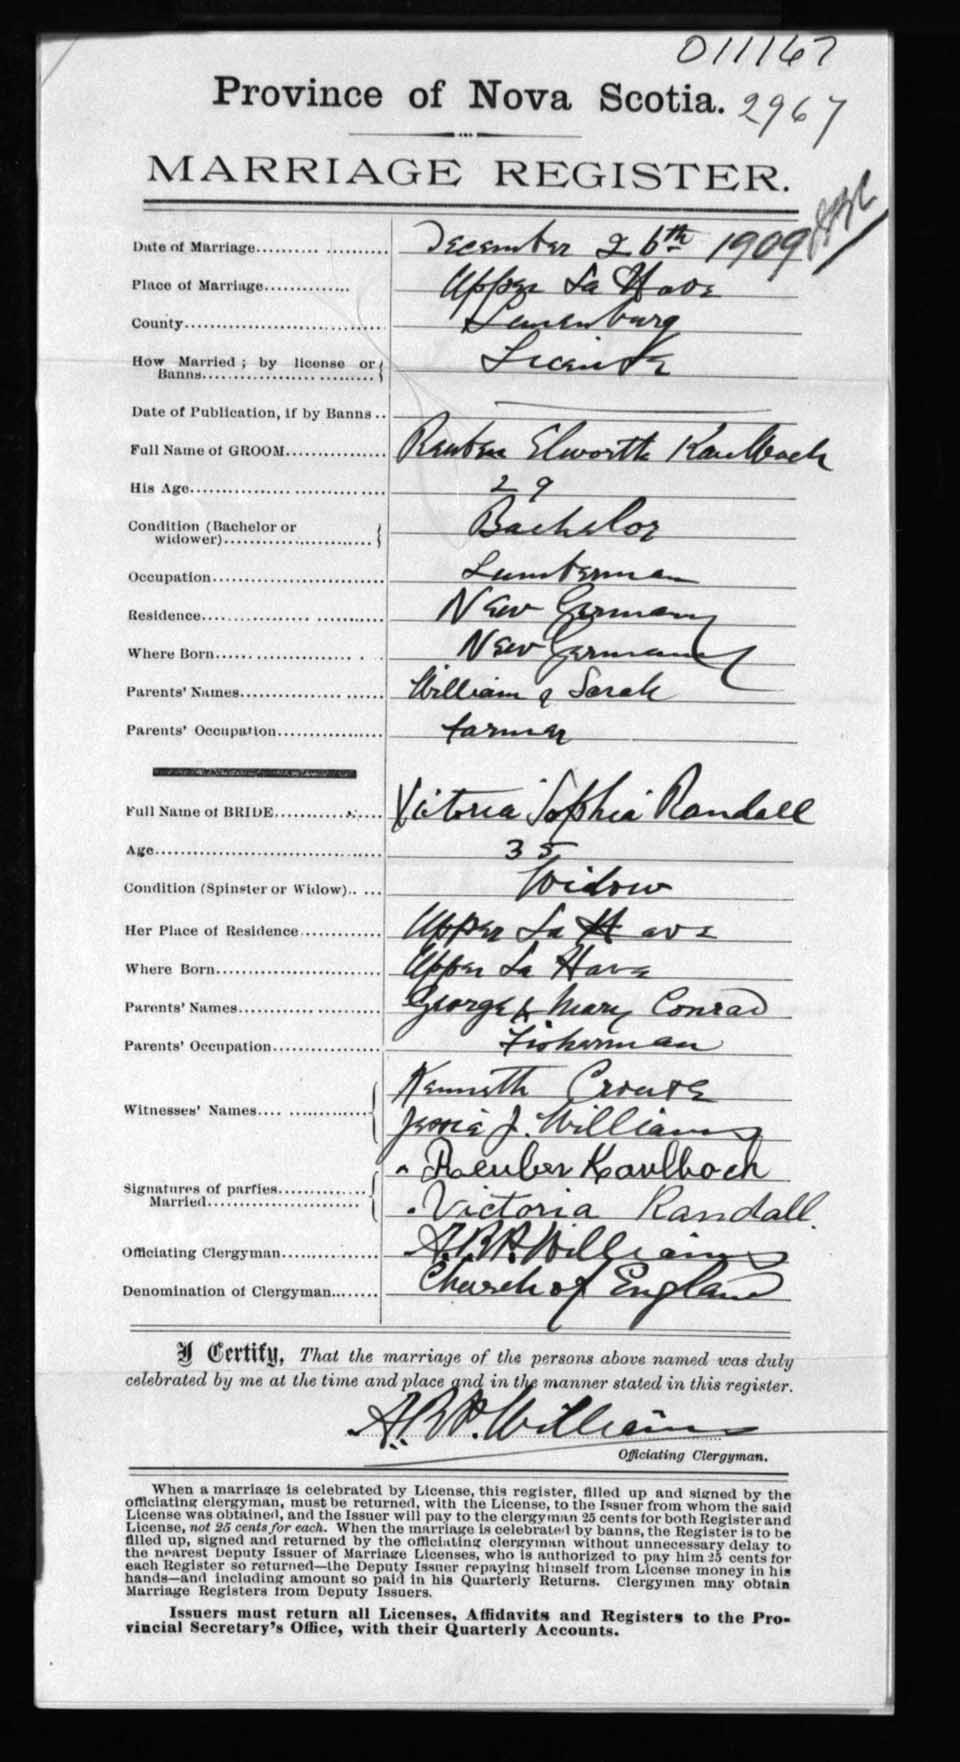 011167
Province of Nova Scotia. 2967
MARRIAGE REGISTER.
Date of Marriage.......... December 26th 1909
Place of Marriage.......... Upper La Have
County.......... Lunenburg
How Married; by license or Banns.......... License
Date of Publication, if by Banns..
Full Name of GROOM.......... Reuben Elworth Kaulback
His Age.......... 29
Condition (Bachelor or widower).......... Bachelor
Occupation.......... Lumberman
Residence.......... New Germany
Where Born.......... New Germany
Parents' Names.......... William & Sarah
Parents' Occupation.......... farmer
Full Name of BRIDE.......... Victoria Sophia Randall
Age.......... 35
Condition (Spinster or Widow)..... Widow
Her Place of Residence.......... Upper La Have
Where Born.......... Upper La Have
Parents' Names.......... George & Mary Conrad
Parents' Occupation.......... Fisherman
Witnesses' Names.......... Kenneth Crouse
Jessie J. Williams
Signatures of parties Married.......... Reuben Kaulback
Victoria Randall.
Officiating Clergyman.......... A.B.P. Williams
Denomination of Clergyman........ Church of England
I Certify, That the marriage of the persons above named was duly
celebrated by me at the time and place and in the manner stated in this register.
A.B.P. Williams
Officiating Clergyman.
When a marriage is celebrated by License, this register, filled up and signed by the
officiating clergyman, must be returned, with the License, to the Issuer from whom the said
License was obtained, and the Issuer will pay to the clergyman 25 cents for both Register and
License, not 25 cents for each. When the marriage is celebrated by banns, the Register is to be
filled up, signed and returned by the officiating clergyman without unnecessary delay to
the nearest Deputy Issuer of Marriage Licenses, who is authorized to pay him 25 cents for
each Register so returned—the Deputy Issuer repaying himself from License money in his
hands—and including amount so paid in his Quarterly Returns. Clergymen may obtain
Marriage Registers from Deputy Issuers.
Issuers must return all Licenses, Affidavits and Registers to the Pro-
vincial Secretary's Office, with their Quarterly Accounts.